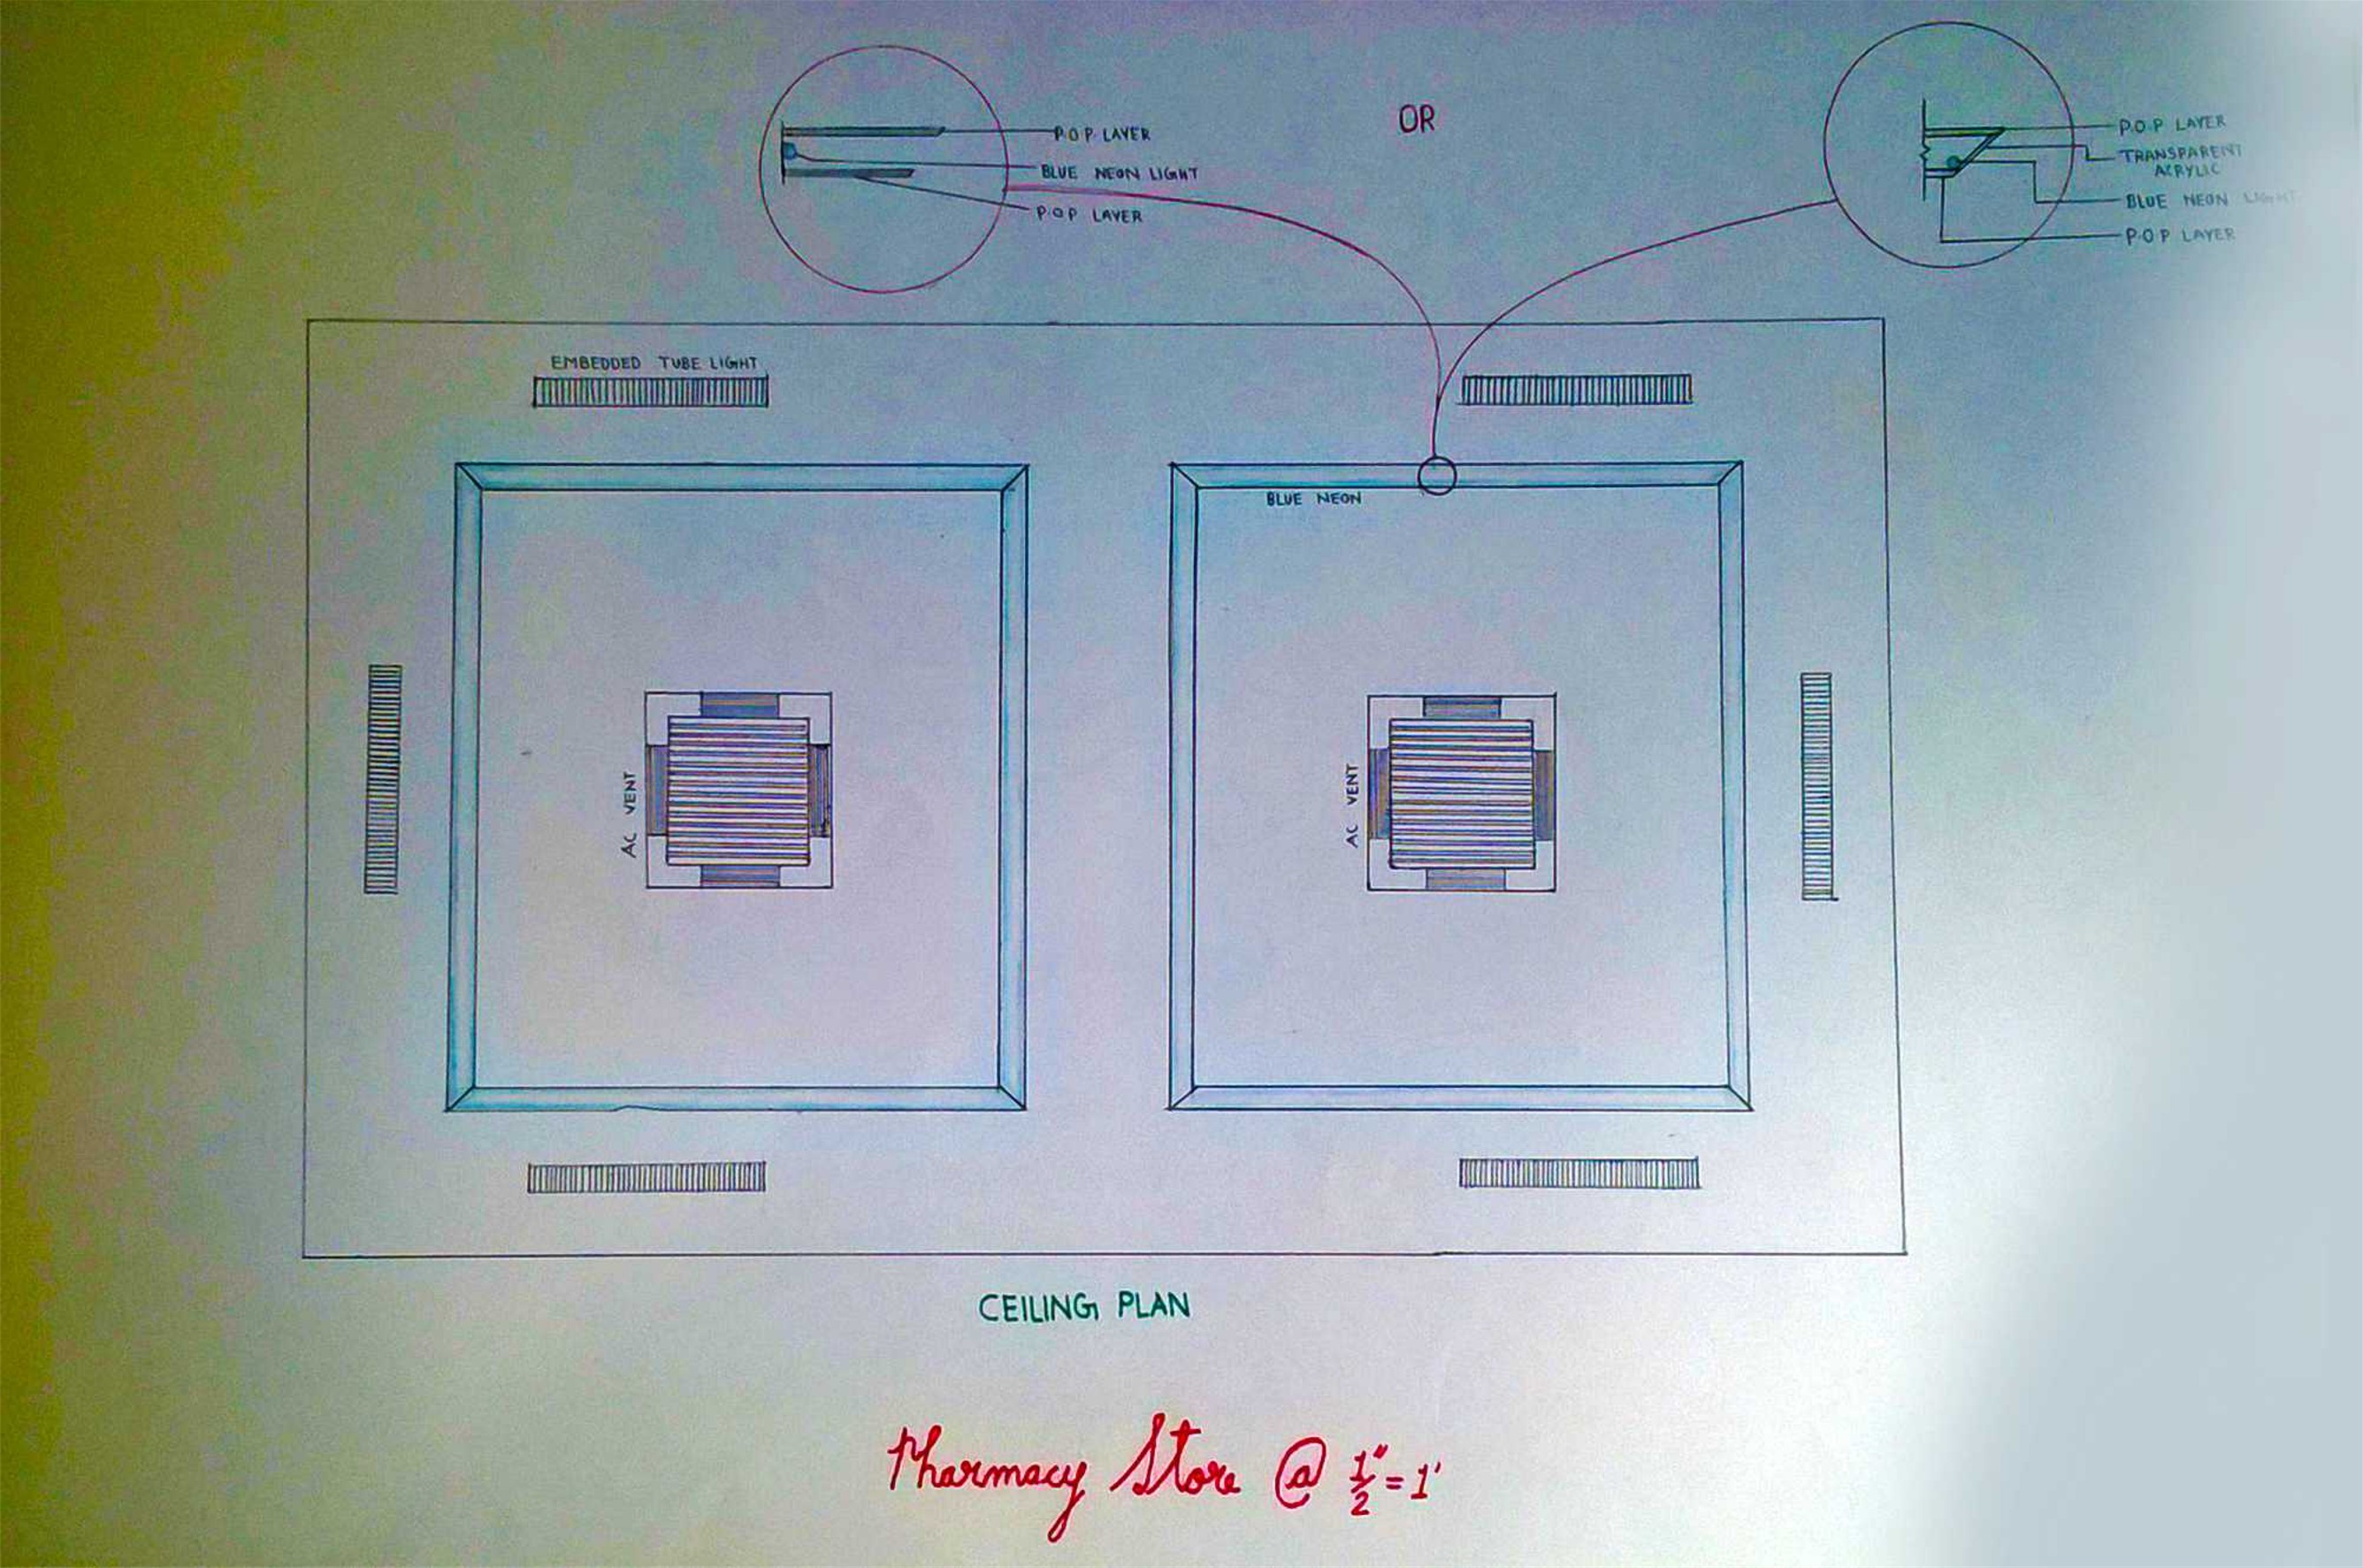 P.O.P. LAYER
BLUE NEON LIGHT
P.O.P LAYER
OR
P.O.P LAYER
TRANSPARENT
ACRYLIC
BLUE NEON LIGHT
P.O.P LAYER
EMBEDDED TUBE LIGHT
BLUE NEON
AC VENT
AC VENT
CEILING PLAN
Pharmacy Store @ 1/2" = 1'